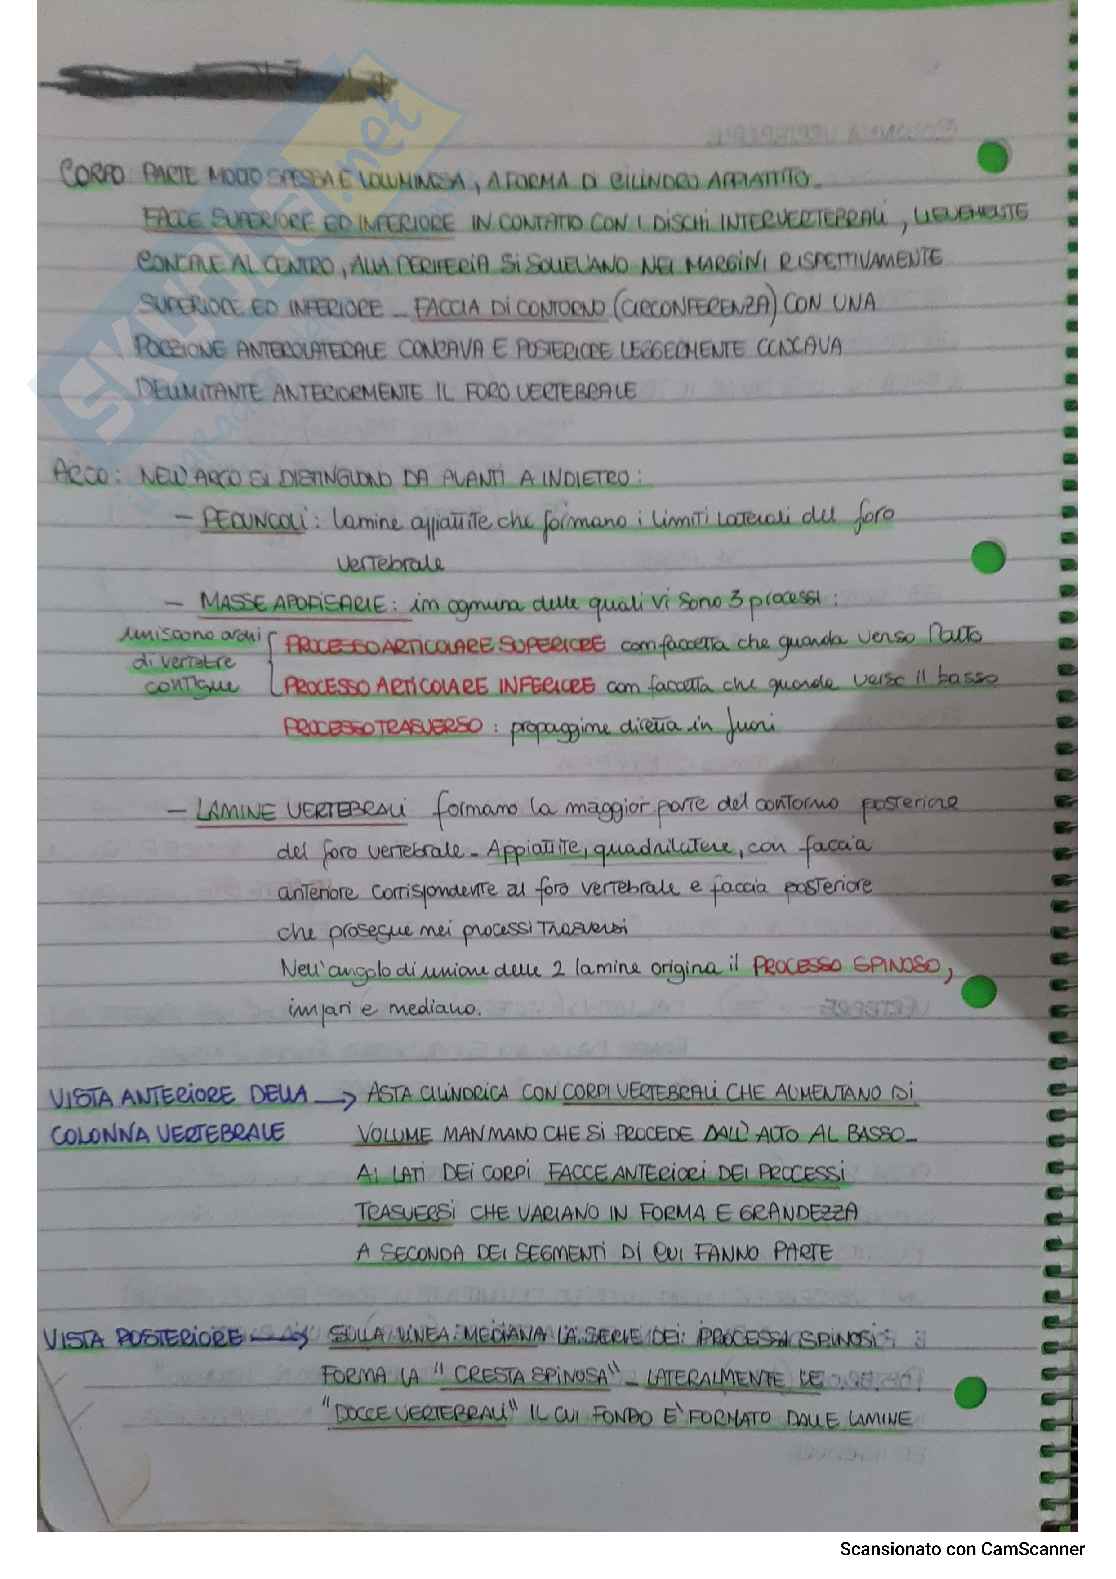 CORPO PARTE MOLTO SPESSA E VOLUMINOSA, A FORMA DI CILINDRO APPIATTITO_
FACCE SUPERIORE ED INFERIORE IN CONTATTO CON I DISCHI INTERVERTEBRALI, LIEVEMENTE
CONCAVE AL CENTRO, ALLA PERIFERIA SI SOLLEVANO NEI MARGINI RISPETTIVAMENTE
SUPERIORE ED INFERIORE _ FACCIA DI CONTORNO (CIRCONFERENZA) CON UNA
PORZIONE ANTEROLATERALE CONCAVA E POSTERIORE LEGGERMENTE CONCAVA
DELIMITANTE ANTERIORMENTE IL FORO VERTEBRALE
ARCO: NELL'ARCO SI DISTINGUONO DA AVANTI A INDIETRO:
- PEDUNCOLI: lamine appiattite che formano i limiti laterali del foro
vertebrale
- MASSE APOFISARIE: in ognuna delle quali vi sono 3 processi:
uniscono archi { PROCESSO ARTICOLARE SUPERIORE con faccetta che guarda verso l'alto
di vertebre
contigue PROCESSO ARTICOLARE INFERIORE con faccetta che guarda verso il basso
PROCESSO TRASVERSO: propaggine diretta in fuori
- LAMINE VERTEBRALI formano la maggior parte del contorno posteriore
del foro vertebrale_ Appiattite, quadrilatere, con faccia
anteriore corrispondente al foro vertebrale e faccia posteriore
che prosegue nei processi trasversi
Nell'angolo di unione delle 2 lamine origina il PROCESSO SPINOSO,
impari e mediano.
VISTA ANTERIORE DELLA → ASTA CILINDRICA CON CORPI VERTEBRALI CHE AUMENTANO DI
COLONNA VERTEBRALE VOLUME MAN MANO CHE SI PROCEDE DALL'ALTO AL BASSO_
AI LATI DEI CORPI FACCE ANTERIORI DEI PROCESSI
TRASVERSI CHE VARIANO IN FORMA E GRANDEZZA
A SECONDA DEI SEGMENTI DI CUI FANNO PARTE
VISTA POSTERIORE → SULLA LINEA MEDIANA LA SERIE DEI PROCESSI SPINOSI
FORMA LA "CRESTA SPINOSA"_ LATERALMENTE LE
"DOCCE VERTEBRALI" IL CUI FONDO E' FORMATO DALLE LAMINE
Scansionato con CamScanner